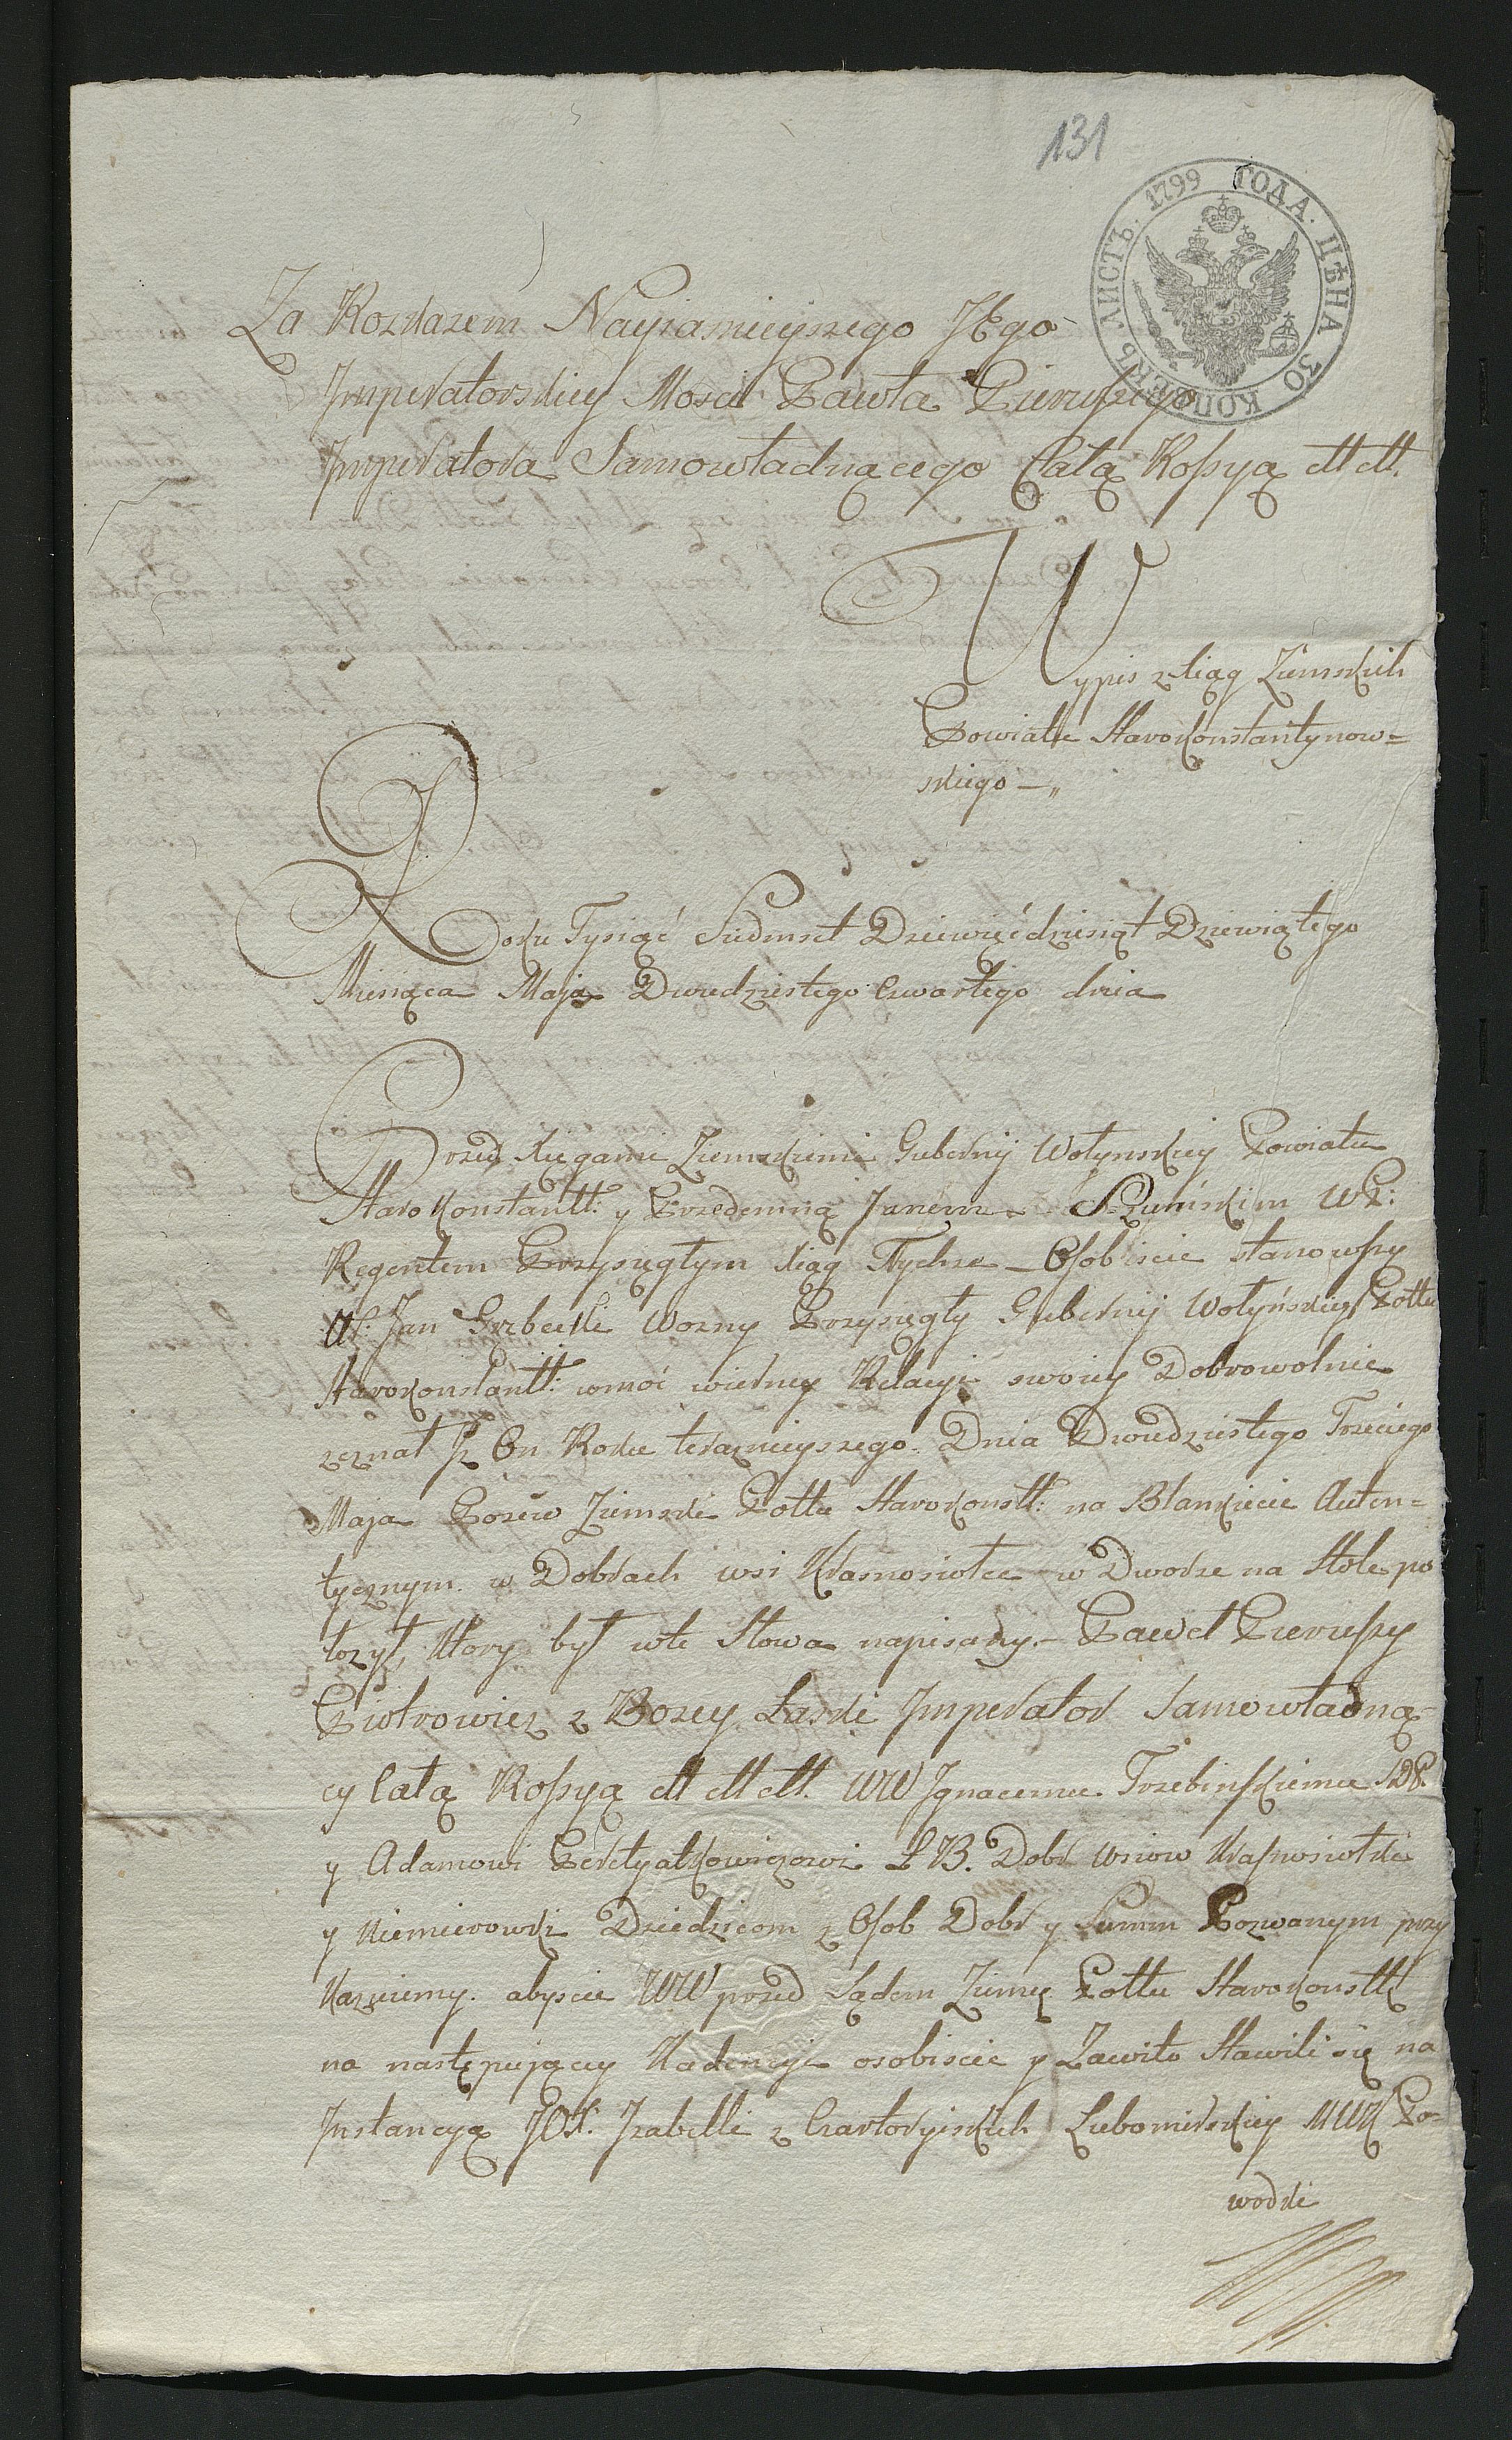 131
ЛИСТЪ. 1799 ГОДА. ЦѢНА 30 КОПѢЕКЪ
Za Rozkazem Nayiasnieyszego JEgo
Jmperatorskiey Mosci Pawła Pierwszego
Jmperatora Samowładnącego Całą Rossyą ett ett.
Wypis z ksiąg Ziemskich
Powiatu Starokonstantynow=
skiego —„
Roku Tysiąć Siedmset Dziewięćdziesiąt Dziewiątego
Miesiąca Maja Dwudziestego Czwartego dnia
Przed Xięgami Ziemskiemi Gubernij Wołynskiey Powiatu
Starokonstantt: y Przedemną Janem
Regentem Przysięgłym xiąg Tychże _ Osobiscie stanowszy
Jan Wozny Przysięgły Gubernij Wołyńskiey Pottu
Starokonstantt: wmoć wierney Relacyi swoiey Dobrowolnie
zeznał Jż On Roku teraznieyszego Dnia Dwudziestego Trzeciego
Maja Pozew Ziemski Pottu Starokonstt: na Blankiecie Auten=
tycznym w Dobrach wsi Krasnosiołce w Dworze na Stole po
łozył, ktory był wte Słowa napisany.— Paweł Pierwszy
Piotrowicz z Bozey Łaski Jmperator Samowładną=
cy Całą Rossyą ett ett ett. WW Jgnacemu Trzebinskiemu SDP.
y Adamowi Dobr wsiow Krasnosiołki
y Niemirowki Dziedzicom z Osob Dobr y Summ Pozwanym przy
kazuiemy. abyscie WW przed Sądem Ziemę Pottu Starokonsttt
na następującey Kadencyi osobiscie y Zawito Stawili się na
Jnstancyą JOX: Jzabelli z Czartoryiskich Lubomirskiey MWK Po=
wodki